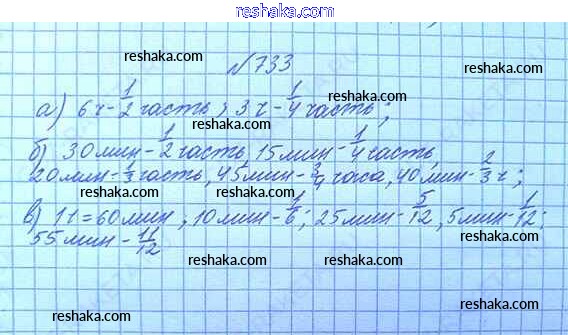 www.reshaka.com
reshaka.com
№733
reshaka.com reshaka.com
а) 6ч - 1/2 часть; 3ч - 1/4 часть;
б) 30мин - 1/2 часть, 15мин - 1/4 часть,
20мин - 1/3 часть, 45мин - 3/4 часа, 40мин - 2/3 ч;
reshaka.com reshaka.com
в) 11=60мин, 10мин - 1/6; 25мин - 5/12, 5мин - 1/12;
55мин - 11/12
reshaka.com reshaka.com
reshaka.com reshaka.com
reshaka.com